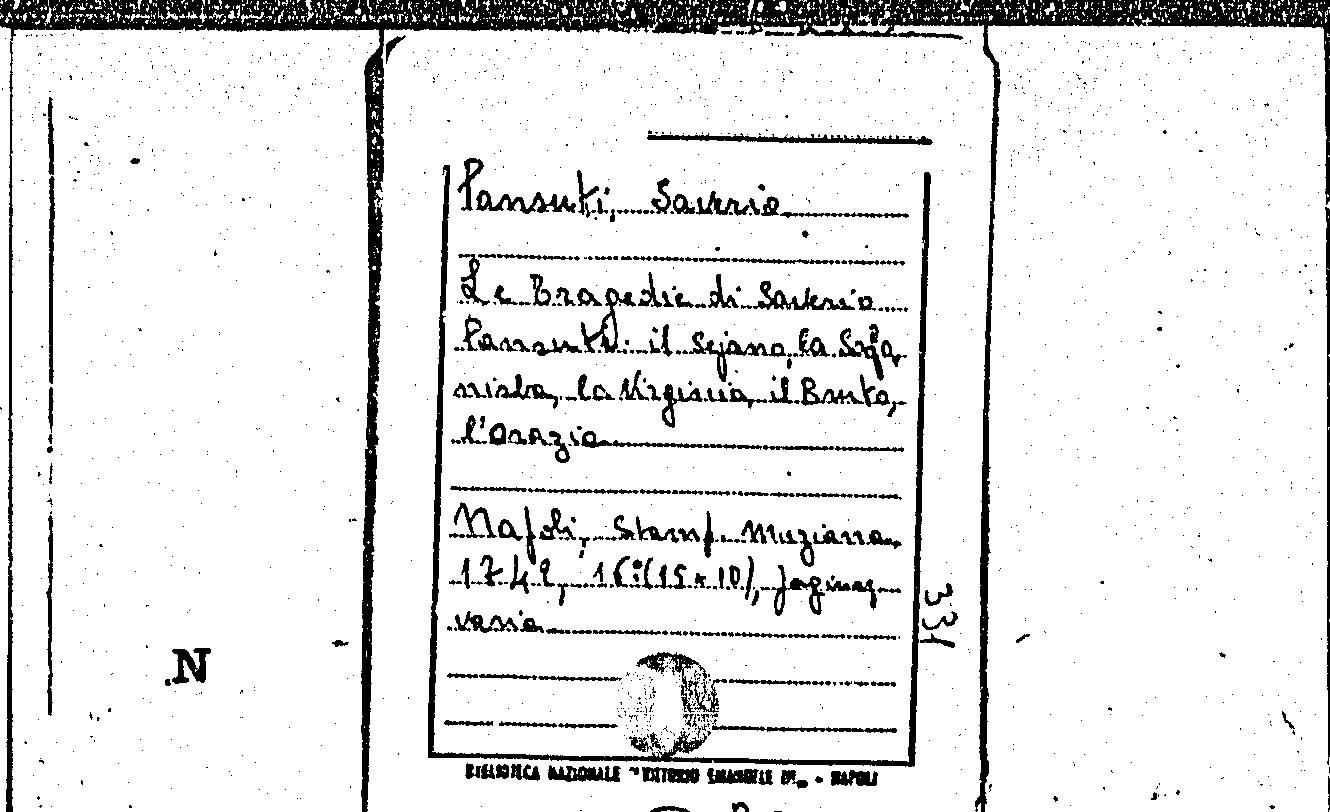 Pansuti, Saverio
Le Tragedie di Saverio
Pansuti: il Sejano, la Sofo,
nisba, la Virginia, il Bruto,
l'Orazio
Napoli, Stamp. Muziana
1742, 16º (15 x 10), paginaz.
varia
331
N
BIBLIOTECA NAZIONALE "VITTORIO EMANUELE III" - NAPOLI